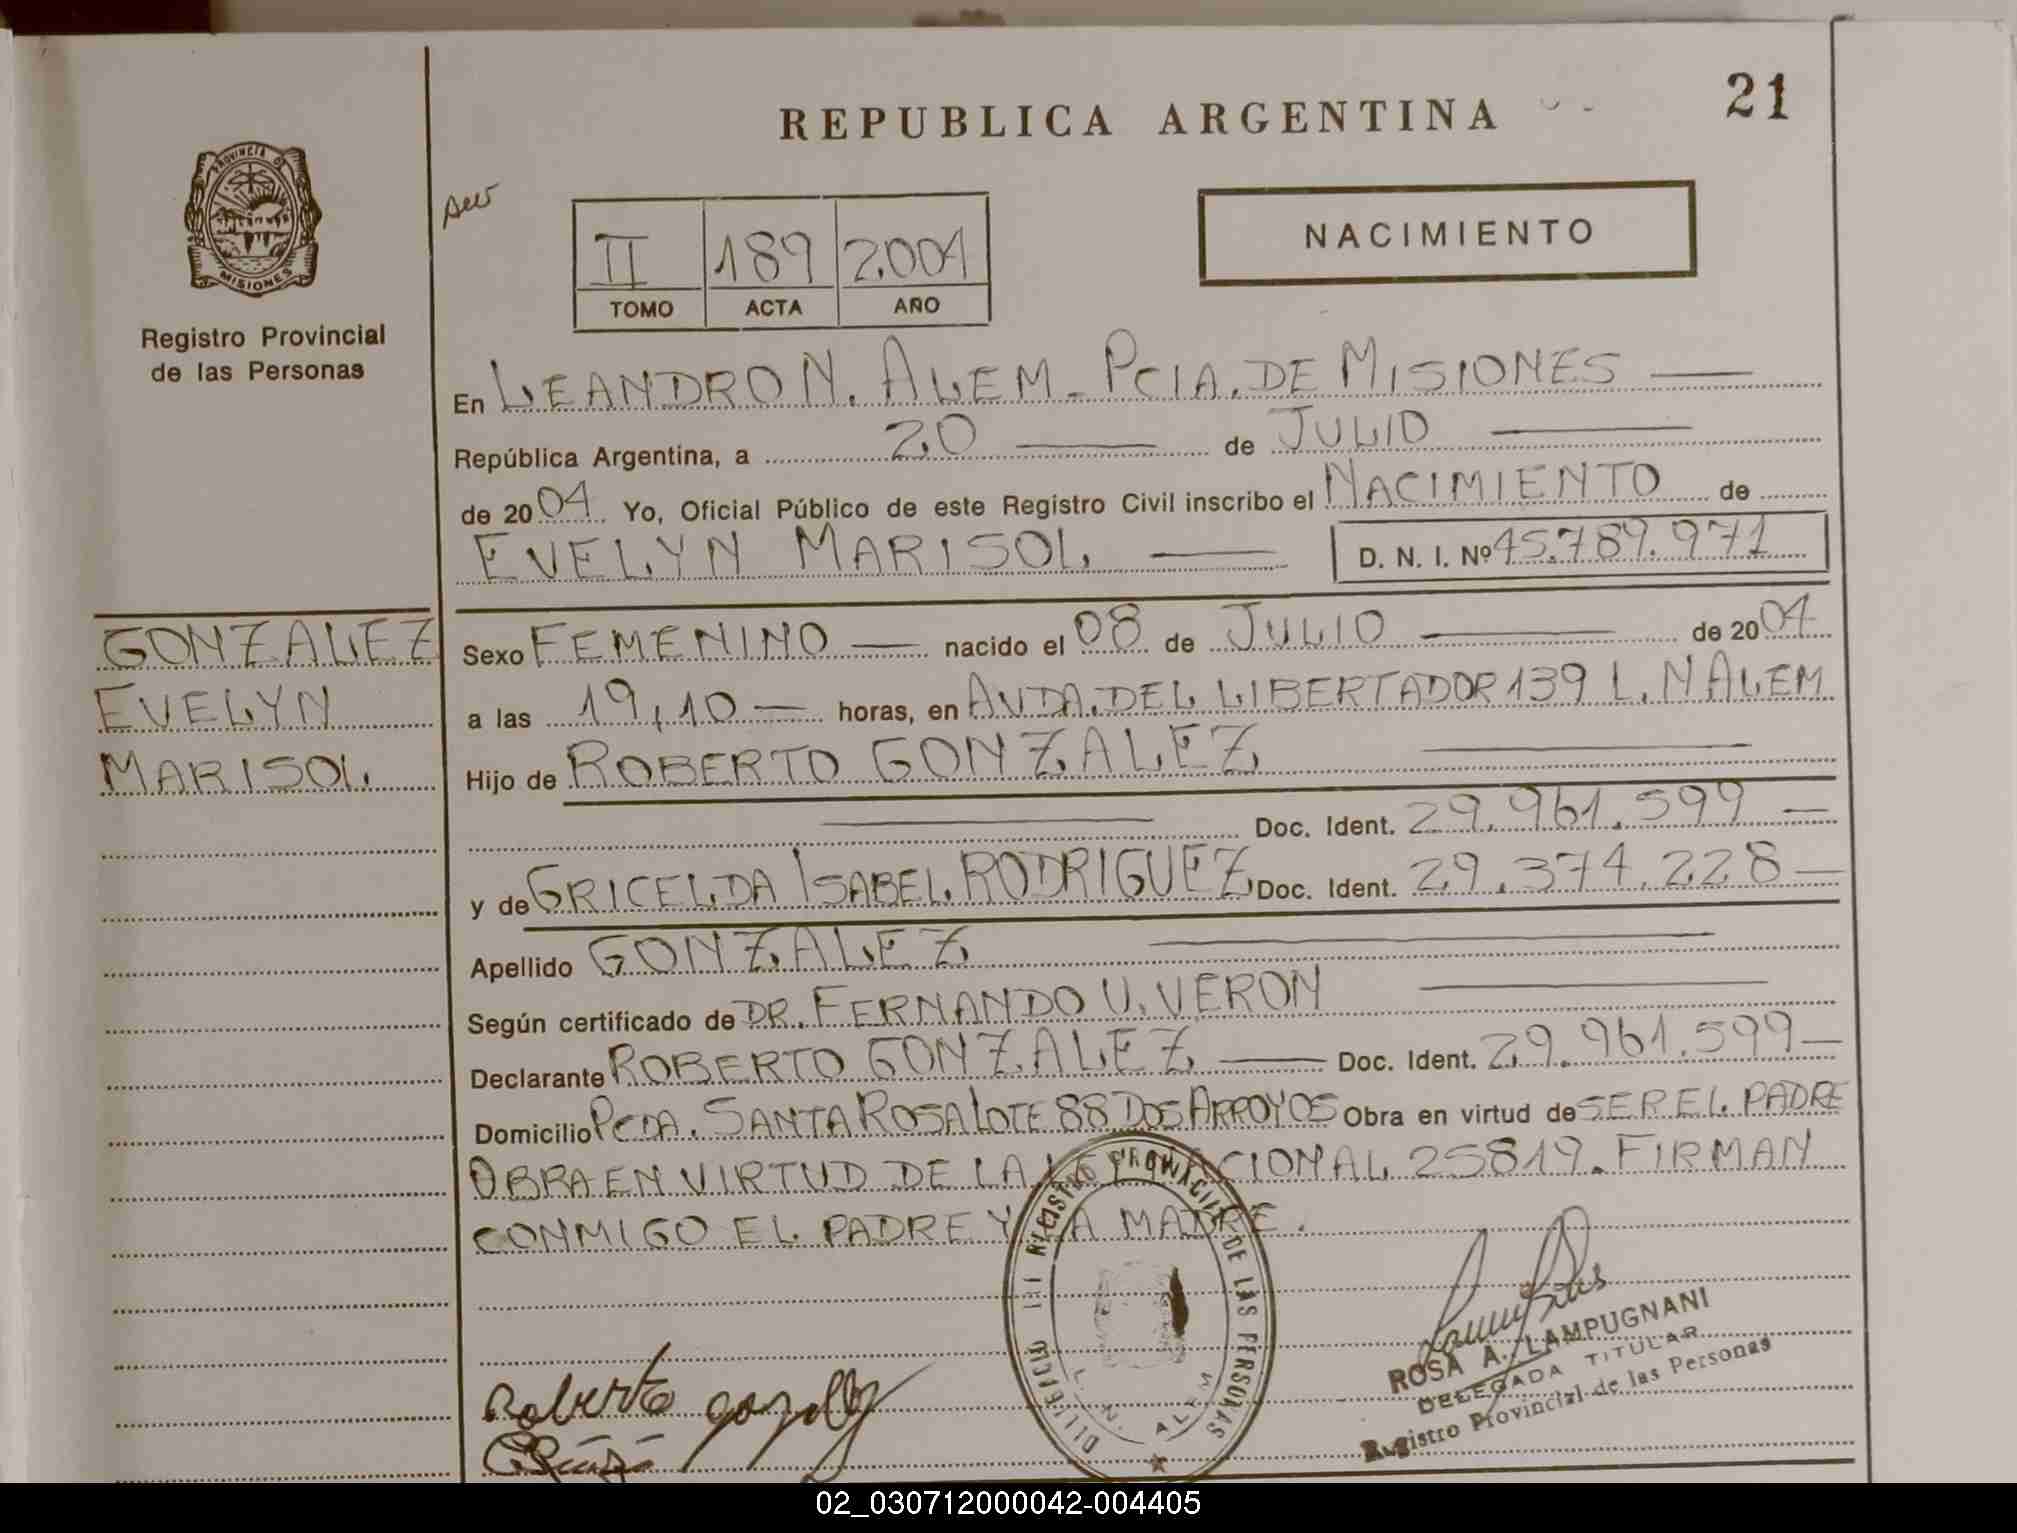 21
REPUBLICA ARGENTINA
PROVINCIA DE
MISIONES
Registro Provincial
de las Personas
II 189 2.004
TOMO ACTA AÑO
NACIMIENTO
En LEANDRO N. ALEM - PCIA. DE MISIONES
República Argentina, a 20 de JULIO
de 2004 Yo, Oficial Público de este Registro Civil inscribo el NACIMIENTO de
EVELYN MARISOL D. N. I. Nº 45.789.971
GONZALEZ
EVELYN
MARISOL
Sexo FEMENINO nacido el 08 de JULIO de 2004
a las 19,10 horas, en AVDA. DEL LIBERTADOR 139 L. N ALEM
Hijo de ROBERTO GONZALEZ
Doc. Ident. 29.961.599
y de GRICELDA ISABEL RODRIGUEZ Doc. Ident. 29.374.228
Apellido GONZALEZ
Según certificado de DR. FERNANDO V. VERON
Declarante ROBERTO GONZALEZ Doc. Ident. 29.961.599
Domicilio PCDA. SANTA ROSA LOTE 88 DOS ARROYOS Obra en virtud de SER EL PADRE
OBRA EN VIRTUD DE LA LEY NACIONAL 25819. FIRMAN
CONMIGO EL PADRE Y LA MADRE.
REGISTRO PROVINCIAL DE LAS PERSONAS
L. N. ALEM
Roberto gonzalez
ROSA A. LAMPUGNANI
DELEGADA TITULAR
Registro Provincial de las Personas
02_030712000042-004405